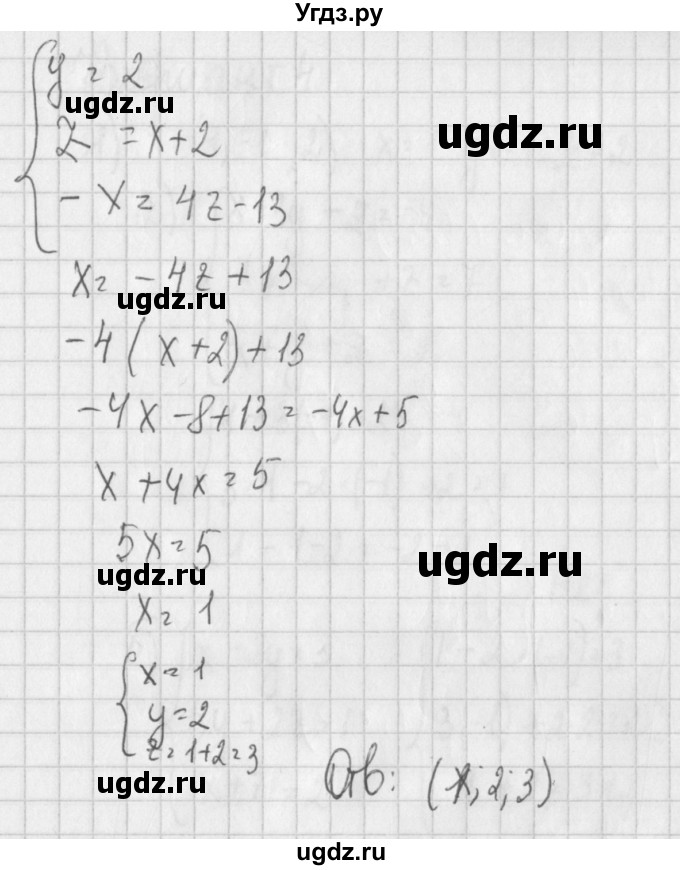 Угдз.ру
y = 2
ugdz.ru
z = x+2
ugdz.ru
- x = 4z - 13
x = - 4z + 13
ugdz.ru
-4 ( x +2) + 13
-4x -8+13 = -4x+5
x +4x = 5
5x = 5
ugdz.ru
ugdz.ru
x = 1
x = 1
y = 2
z = 1+2 = 3
ugdz.ru
Отв: (1; 2; 3)
ugdz.ru